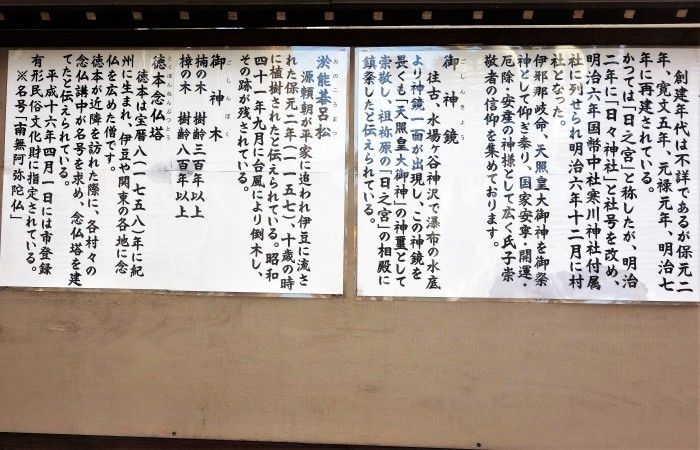 創建年代は不詳であるが保元二
年、寛文五年、元禄元年、明治七
年に再建されている。
かつては「日之宮」と称したが、明治
二年に「日々神社」と社号を改め、
明治六年国幣中社寒川神社付属
社に列せられ明治六年十二月に村
社となった。
伊邪那岐命、天照皇大御神を御祭
神として仰ぎ奉り、国家安寧・開運・
厄除・安産の神様として広く氏子崇
敬者の信仰を集めております。
御神鏡
ごしんきょう
往古、水場ヶ谷神沢で瀑布の水底
より神鏡一面が出現し、この神鏡を
長くも「天照皇大御神」の神璽として
崇敬し、祖祢原の「日之宮」の相殿に
鎮祭したと伝えられている。
淤能碁呂松
おのころまつ
源頼朝が平家に追われ伊豆に流さ
れた保元二年(一一五七)、十歳の時
に植樹されたと伝えられている。昭和
四十一年九月に台風により倒木し、
その跡が残されている。
御神木
ごしんぼく
楠の木 樹齢三百年以上
樟の木 樹齢八百年以上
徳本念仏塔
とくほんねんぶつとう
徳本は宝暦八(一七五八)年に紀
州に生まれ、伊豆や関東の各地に念
仏を広めた僧です。
徳本が近隣を訪れた際に、各村々の
念仏講中が名号を求め、念仏塔を建
てたと伝えられている。
平成十六年四月一日には市登録
有形民俗文化財に指定されている。
※名号「南無阿弥陀仏」